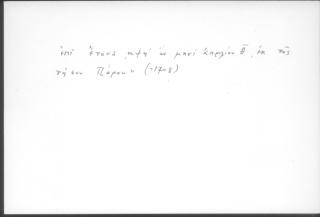 ἐπὶ ἔτους αψή ἐν μηνὶ Ἀπριλίου ἐκ τῆς
νήσου Πάρου" (-1708)